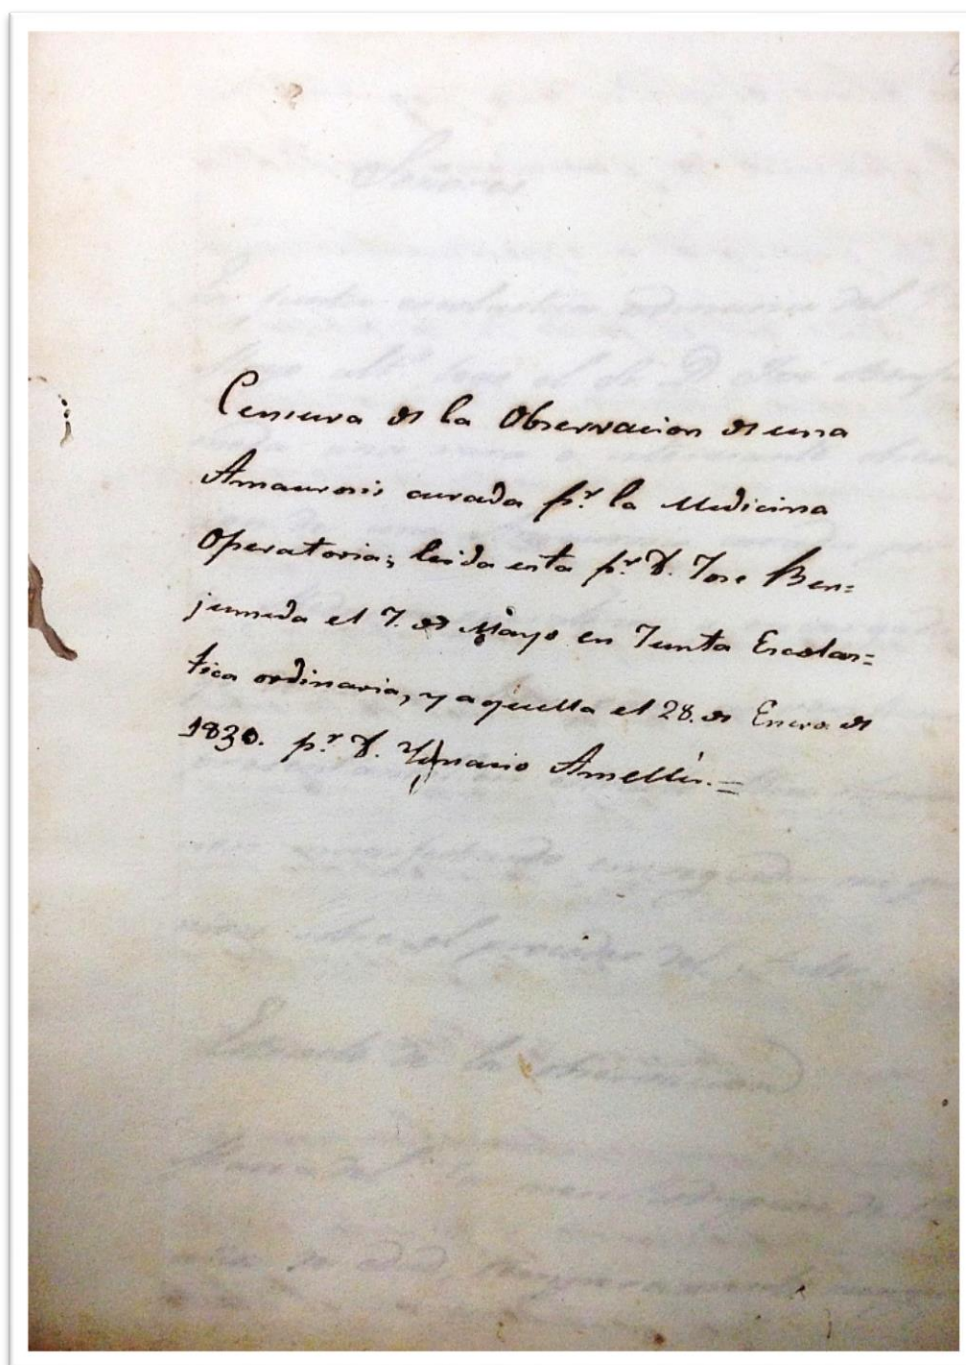 Censura de la Observacion de una
Amaurosis curada p.r la Medicina
Operatoria; leida esta p.r D. Jose Ben=
jumeda el 7. de Mayo en Junta Escolas=
tica ordinaria, y aquella el 28. de Enero de
1830. p.r D. Ignacio Ameller.=